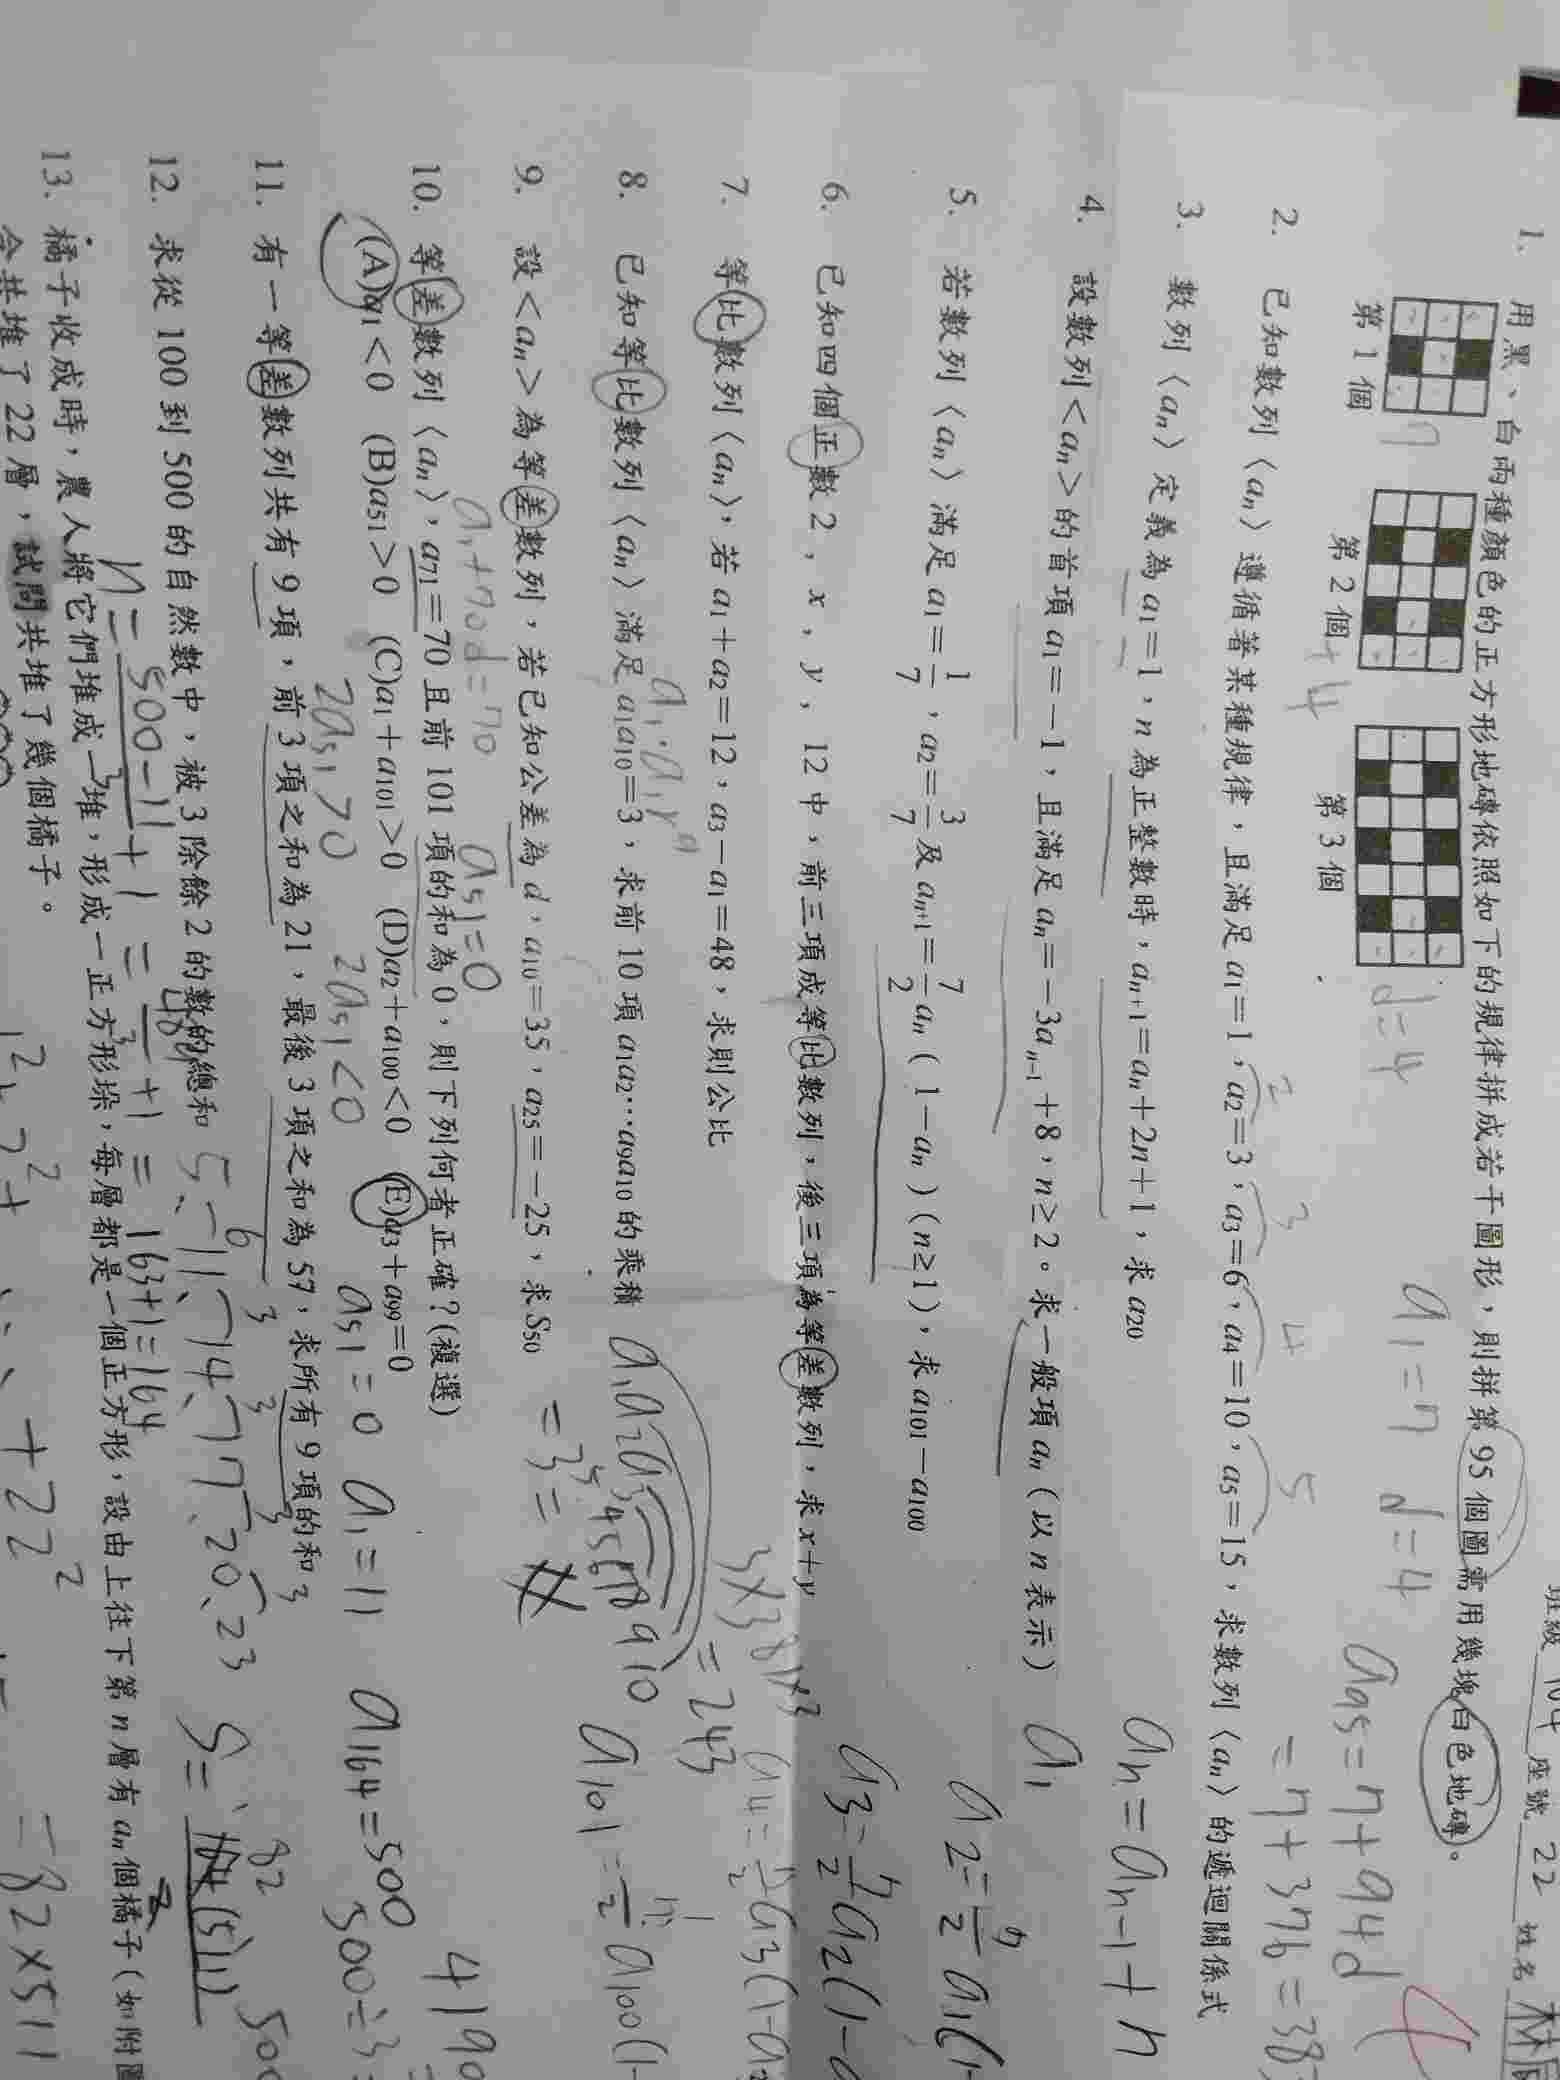 班級 104 座號 22 姓名 林
1. 用黑、白兩種顏色的正方形地磚依照如下的規律拼成若干圖形，則拼第 95 個圖需用幾塊白色地磚。
第 1 個 第 2 個 第 3 個
7 +4 d=4 a1=7 d=4 a95=7+94d
=7+376=38
2. 已知數列〈an〉遵循著某種規律，且滿足 a1=1，a2=3，a3=6，a4=10，a5=15，求數列〈an〉的遞迴關係式
2 3 4 5
an=an-1+n
3. 數列〈an〉定義為 a1=1，n 為正整數時，an+1=an+2n+1，求 a20
4. 設數列<an>的首項 a1=-1，且滿足 an=-3an-1+8，n≥2。求一般項 an（以 n 表示）
a1
5. 若數列〈an〉滿足 a1=1/7，a2=3/7 及 an+1=7/2an（1-an）(n≥1)，求 a101-a100
a2=7/2 a1(1-
a3=7/2 a2(1-a
6. 已知四個正數 2，x，y，12 中，前三項成等比數列，後三項為等差數列，求 x+y
7. 等比數列〈an〉，若 a1+a2=12，a3-a1=48，求則公比
=243
8. 已知等比數列〈an〉滿足 a1a10=3，求前 10 項 a1a2…a9a10 的乘積
a1a2a3 4 5 6 7 8 9 10
=3^5=
a101=7/2 a100(1-
9. 設<an>為等差數列，若已知公差為 d，a10=35，a25=-25，求 S50
a1+70d=70 a51=0
10. 等差數列〈an〉，a71=70 且前 101 項的和為 0，則下列何者正確？(複選)
(A)a1<0 (B)a51>0 (C)a1+a101>0 (D)a2+a100<0 (E)a3+a99=0
2a51>0 2a51<0 a51=0 a1=11 a164=500
500÷3=
11. 有一等差數列共有 9 項，前 3 項之和為 21，最後 3 項之和為 57，求所有 9 項的和
12. 求從 100 到 500 的自然數中，被 3 除餘 2 的數的總和
5、11、14、17、20、23
n=500-11/3+1=489/3+1=163+1=164
=82×511
13. 橘子收成時，農人將它們堆成一堆，形成一正方形垛，每層都是一個正方形，設由上往下第 n 層有 an 個橘子（如附圖
今共堆了 22 層，試問共堆了幾個橘子。